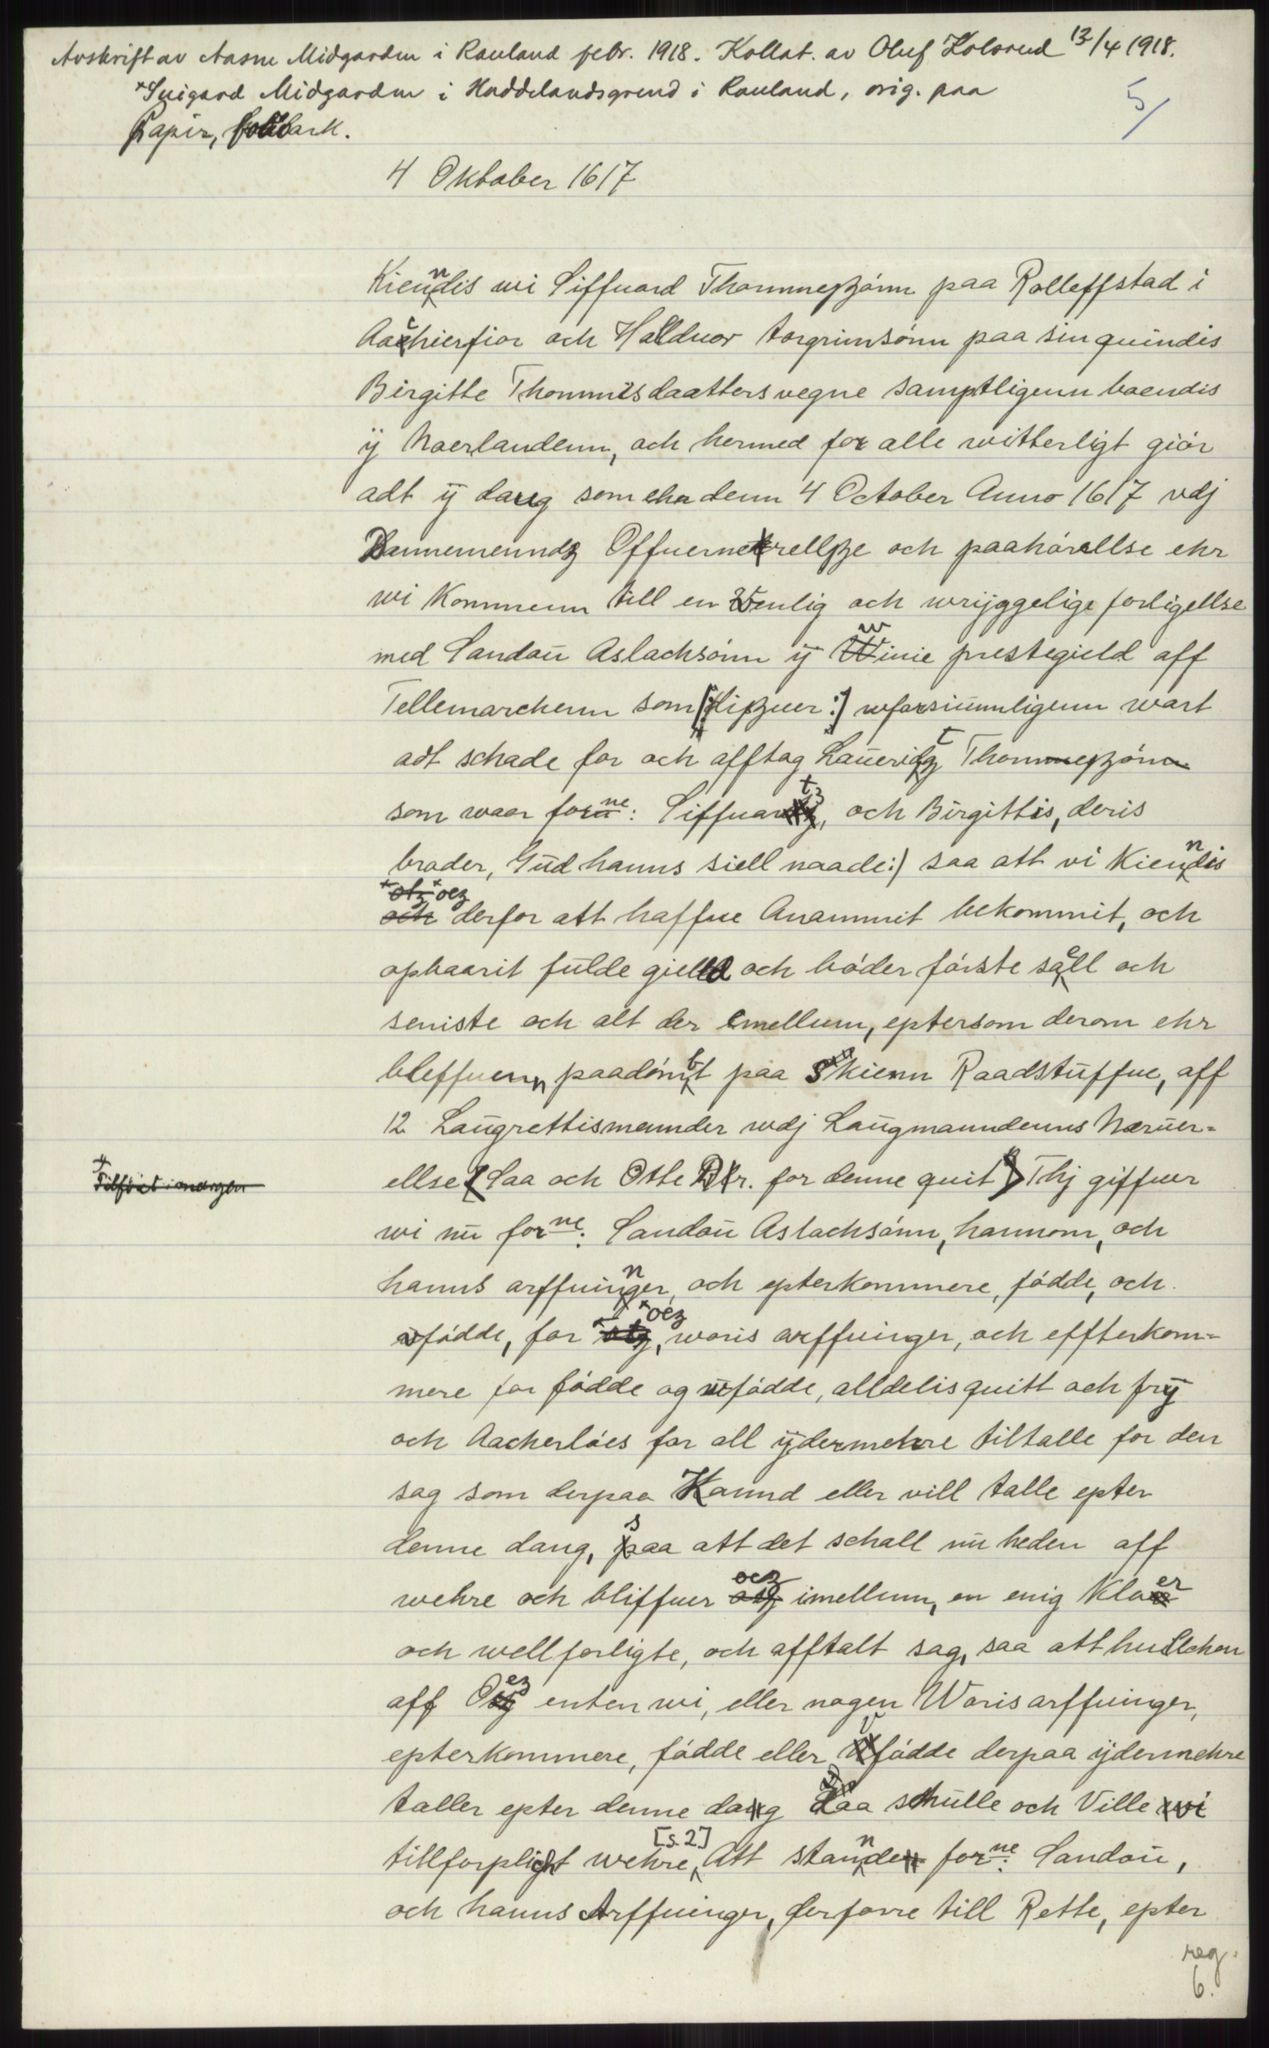 Avskrift av Aasne Midgarden i Rauland febr. 1918. Kollat. av Oluf Kolsrud 13/4 1918.
*Suigard Midgarden i Haddelandsgrend i Rauland, orig. paa
Papir, ark.
5/
4 Oktober 1617
Kienndis wi Siffuord Thommeszónn paa Rolleffstad i
Aachierfior och Halduor torgrimsónn paa sin quindis
Birgitte Thommisdaatters vegne samptligenn boendis
ÿ Noerlandenn, och hermed for alle witterligt giór
adt ÿ dag som ehr denn 4 October Anno 1617 vdj
Dannemenndz Offuernerellsze och paahórellse ehr
wi Kommenn till en Wenlig och wrijggelige forligellse
med Sandoü Aslachsónn ÿ Winie prestegield aff
Tellemarchenn som [: disz uer :] wforsiunnligenn wart
adt schade for och afftag Laüeridtz Thommeszónn
som waar forne: Siffuartz, och Birgittis, deris
broder, Gud hanns siell naade:) saa att vi Kienndis
oez derfor att haffue Anammit bekommit, och
opbaarit fulde gield och bóder fórste sael och
seniste och alt der emellum, eptersom derom ehr
bleffuenn paadómbt paa Skienn Raadstüffue, aff
12 Laügrettismennder wdj Laügmanndenns Neruer=
ellse Saa och Otte Dlr. for denne quit) Thj giffuer
*Tilføiet i margen
wi nü forne: Sandoü Aslachsónn, hannom, och
hanns arffuinnger, och epterkommere, fódde, och
vfódde, for oez, woris arffuinger, och effterkom=
mere for fódde og ufódde, alldelis quitt och frÿ
och Aacherlóes for all ÿdermehre tiltalle for den
sag som derpaa Kannd eller vill talle epter
denne dang, saa att det schall nü heden aff
wehre och bliffuer oez imellum, en enig Klaer
och wellforligte, och afftalt sag, saa att huilchen
aff Oez enten wi, eller nogen Woris arffuinger,
epterkommere, fódde eller vfódde derpaa ÿdermehre
taller epter denne dag saa schulle och Ville
tillforplicht wehre [s. 2] Att stannde forne: Sandoü,
och hanns Arffuinger, derforre till Rette, epter
reg.
6.